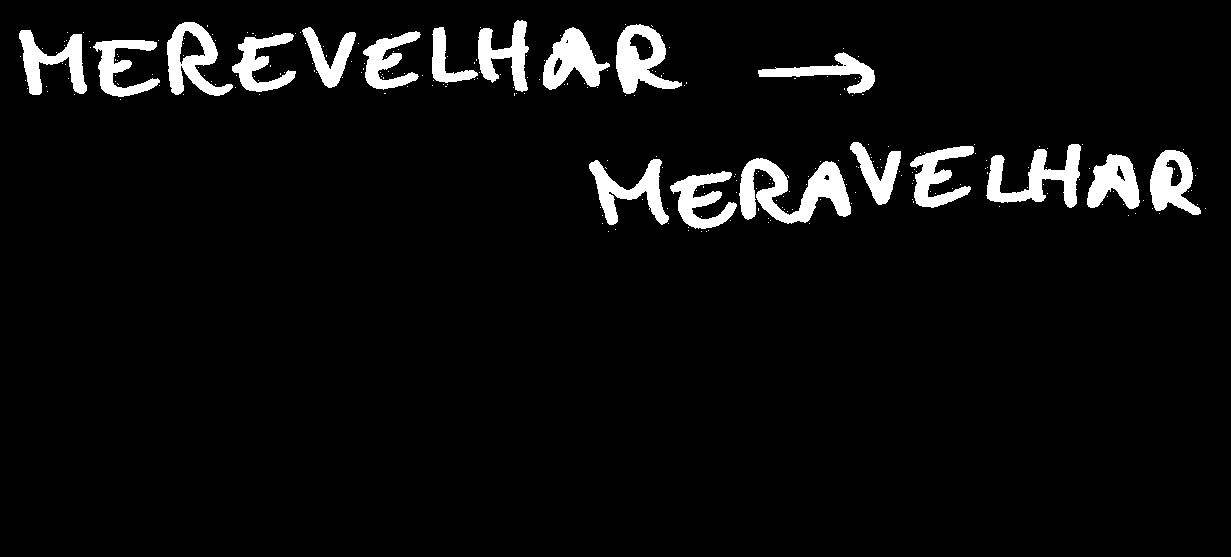 MEREVELHAR →
MERAVELHAR